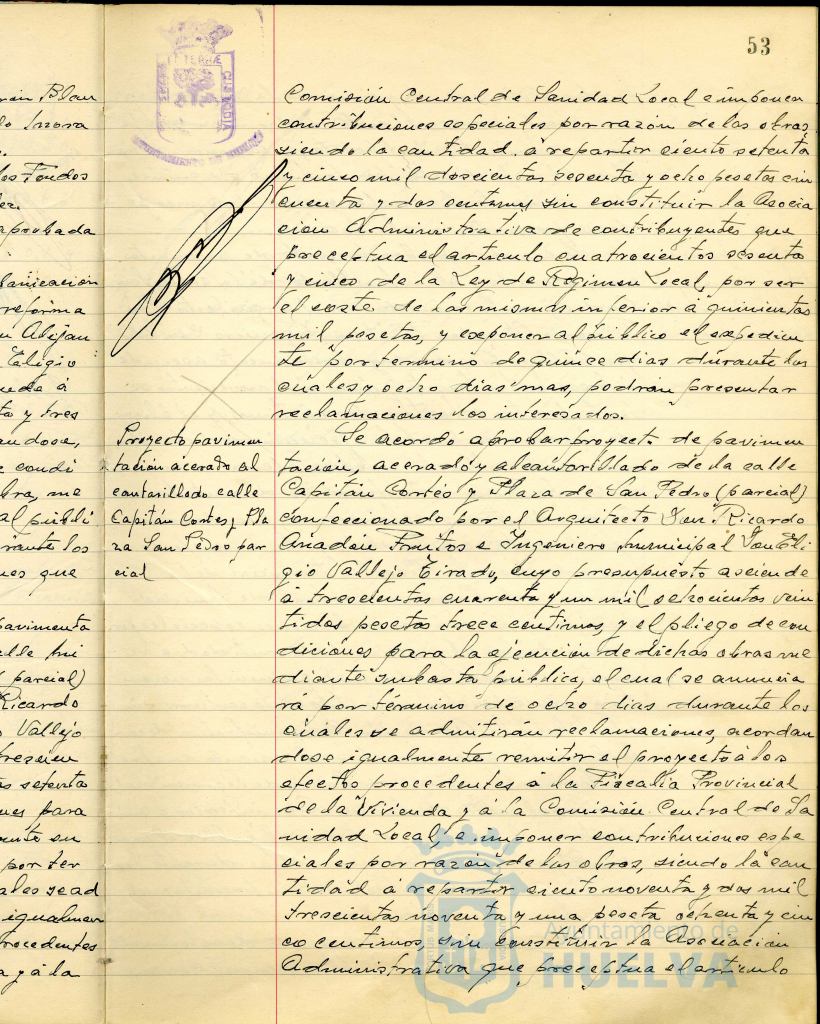 53
Comisión Central de Sanidad Local e imponer
contribuciones especiales por razón de las obras
siendo la cantidad á repartir ciento setenta
y cinco mil doscientas sesenta y ocho pesetas cin
cuenta y dos centimos sin constituir la Asocia
ción Administrativa de contribuyentes que
preceptua el articulo cuatrocientos sesenta
y cinco de la Ley de Regimen Local, por ser
el coste de las mismas inferior á quinientas
mil pesetas, y exponer al público el expedien
te por termino de quince dias durante los
cuales y ocho dias mas, podrán presentar
reclamaciones los interesados.
Proyecto pavimen
tación acerado al
cantarillado calle
Capitán Cortes y Pla
za San Pedro par
cial
Se acordó aprobar proyecto de pavimen
tación, acerado y alcantarillado de la calle
Capitán Cortés y Plaza de San Pedro (parcial)
confeccionado por el Arquitecto Don Ricardo
Anadón Frutos e Ingeniero municipal Don Eli
gio Vallejo Tirado, cuyo presupuesto asciende
á trescientas cuarenta y un mil setecientas vein
tidos pesetas trece centimos, y el pliego de con
diciones para la ejecución de dichas obras me
diante subasta pública, el cual se anuncia
rá por término de ocho dias durante los
cuales se admitirán reclamaciones, acordan
dose igualmente remitir el proyecto á los
efectos procedentes á la Fiscalia Provincial
de la Vivienda y á la Comisión Central de Sa
nidad Local, e imponer contribuciones espe
ciales por razón de las obras, siendo la can
tidad á repartir ciento noventa y dos mil
trescientas noventa y una peseta ochenta y cin
co centimos, sin constituir la Asociación
Administrativa que preceptua el articulo
Ayuntamiento de
HUELVA